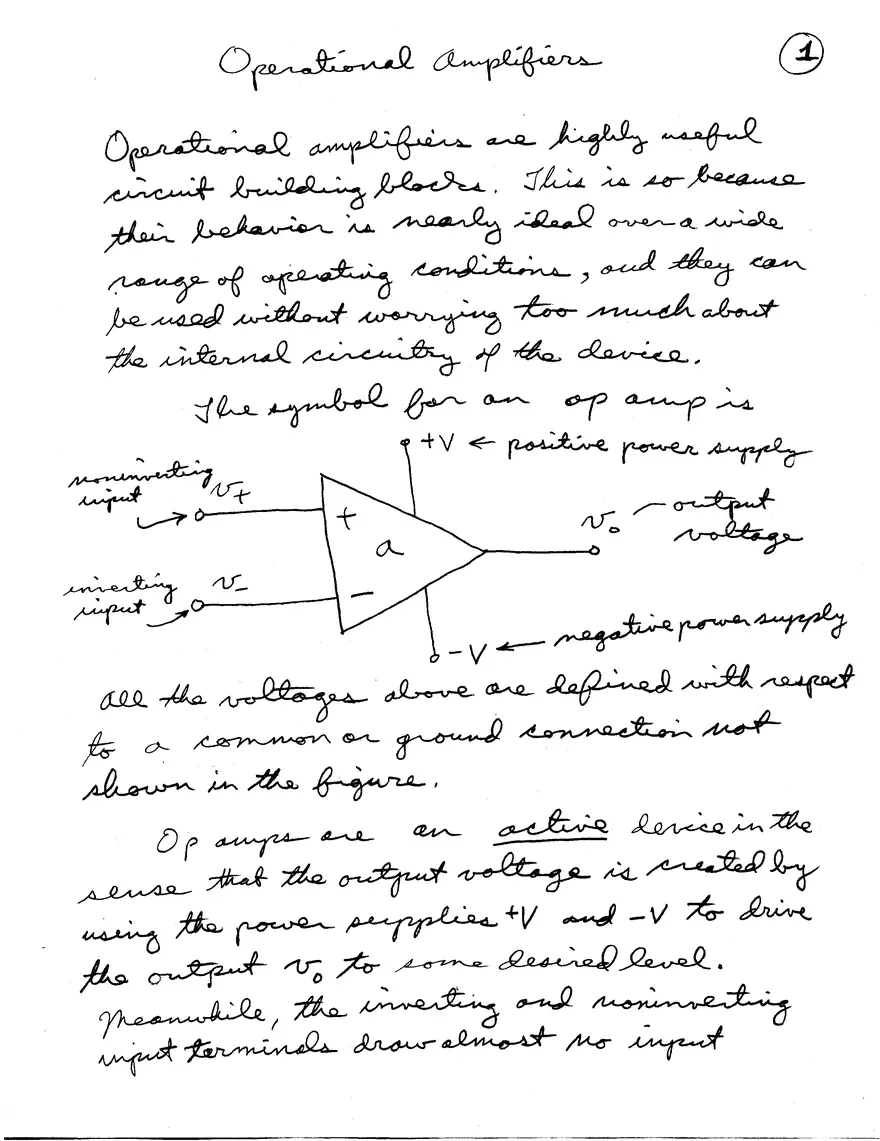 Operational Amplifiers
1
Operational amplifiers are highly useful
circuit building blocks. This is so because
their behavior is nearly ideal over a wide
range of operating conditions, and they can
be used without worrying too much about
the internal circuitry of the device.
The symbol for an op amp is
+V ← positive power supply
noninverting
input
v+
+
a
v₀
output
voltage
inverting
input
v-
-
-V ← negative power supply
All the voltages above are defined with respect
to a common or ground connection not
shown in the figure.
Op amps are an active device in the
sense that the output voltage is created by
using the power supplies +V and -V to drive
the output v₀ to some desired level.
Meanwhile, the inverting and noninverting
input terminals draw almost no input